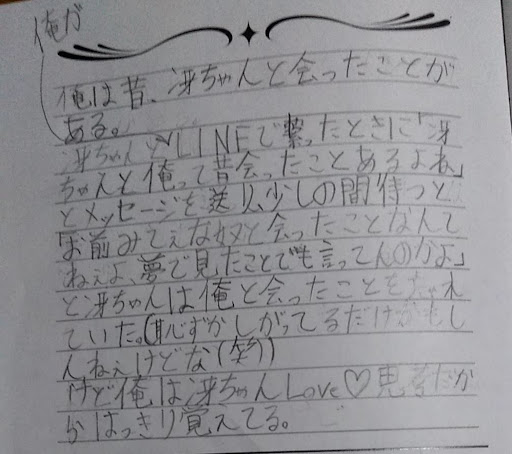 俺が
俺は昔、冴ちゃんと会ったことが
ある。
冴ちゃんとLINEで繋ったときに「冴
ちゃんと俺って昔会ったことあるよね」
とメッセージを送り、少しの間待つと
「お前みてぇな奴と会ったことなんて
ねぇよ、夢で見たことでも言ってんのかよ」
と冴ちゃんは俺と会ったことを忘れ
ていた。(恥ずかしがってるだけかもし
んねぇけどな(笑))
けど俺は冴ちゃんLove♡
からはっきり覚えてる。